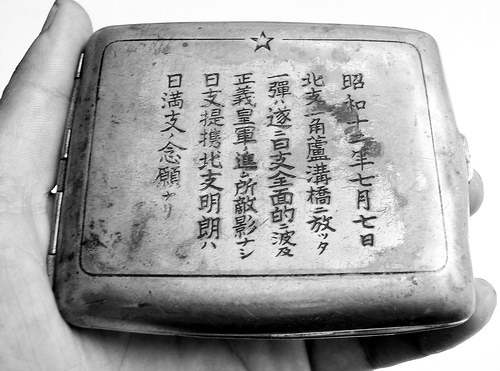 昭和十二年七月七日
北支ノ一角蘆溝橋ニ放ツタ
一彈ハ遂ニ日支全面的ニ波及
正義皇軍ノ進ム所敵影ナシ
日支提携北支明朗ハ
日満支ノ念願ナリ